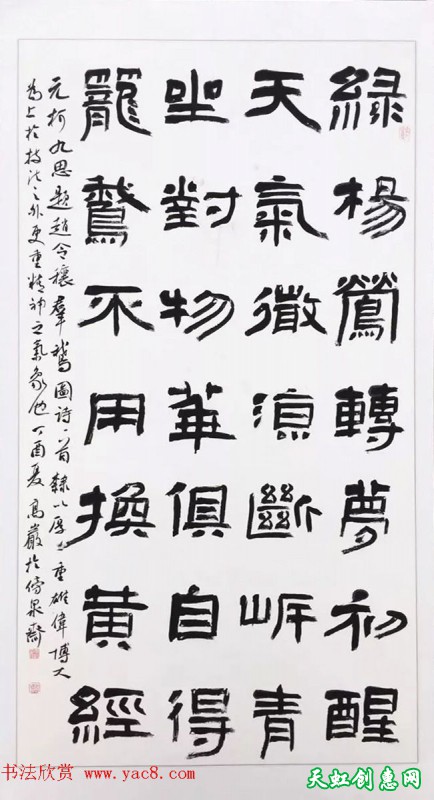 綠楊鶯轉夢初醒
天氣微涼斷岸青
坐對物華俱自得
籠鵞不用換黄經
元柯九思題趙令穰羣鵞圖詩一首隸以厚重雄偉博大
為上於技法之外更重精神之氣象也丁酉夏高巖於傍泉齋
书法欣赏 www.yac8.com
天虹创惠网